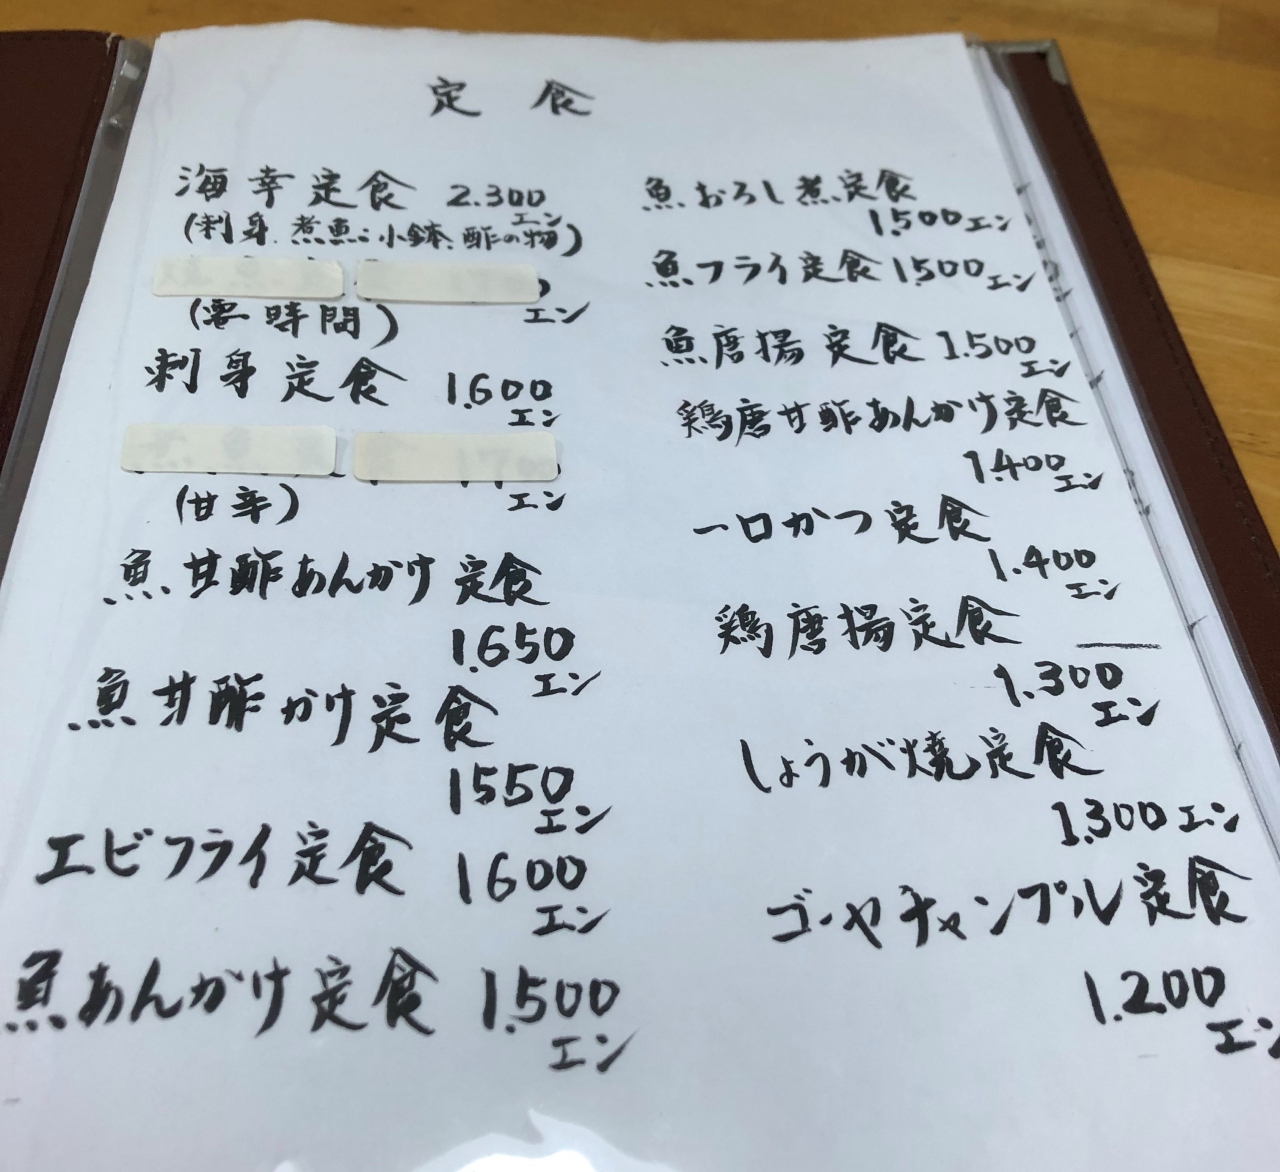 定食
海幸定食 2.300エン
(刺身.煮魚.小鉢.酢の物)
エン
(要時間)
刺身定食 1.600エン
エン
(甘辛)
魚甘酢あんかけ定食
1.650エン
魚甘酢かけ定食
1550エン
エビフライ定食 1600エン
魚あんかけ定食 1.500エン
魚おろし煮定食
1.500エン
魚フライ定食 1.500エン
魚唐揚定食 1.500エン
鶏唐甘酢あんかけ定食
1.400エン
一口かつ定食
1.400エン
鶏唐揚定食
1.300エン
しょうが焼定食
1.300エン
ゴーヤチャンプル定食
1.200エン